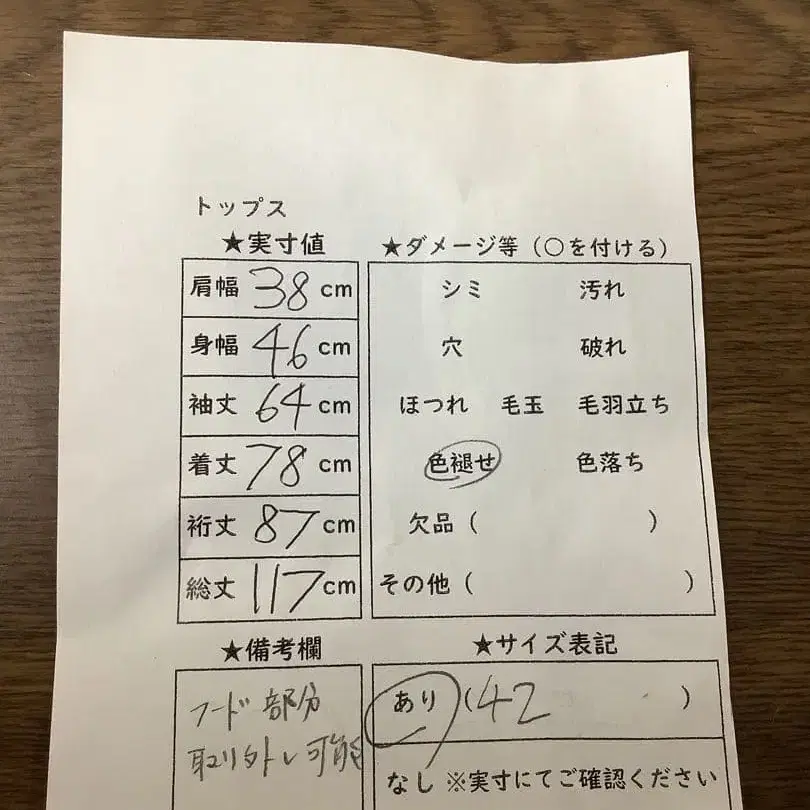 トップス
★実寸値
肩幅 38 cm
身幅 46 cm
袖丈 64 cm
着丈 78 cm
裄丈 87 cm
総丈 117 cm
★ダメージ等（○を付ける）
シミ 汚れ
穴 破れ
ほつれ 毛玉 毛羽立ち
色褪せ 色落ち
欠品（ ）
その他（ ）
★備考欄
フード部分
取り外し可能
★サイズ表記
あり（42 ）
なし ※実寸にてご確認ください